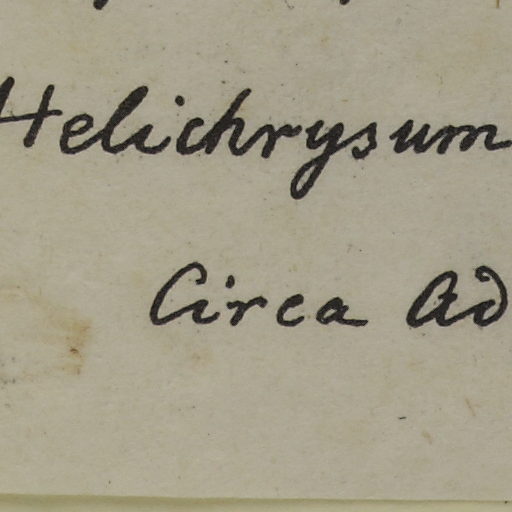 Helichrysum
Circa Ad